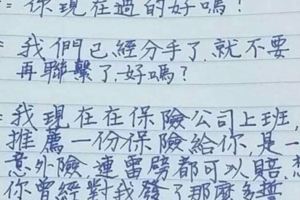 = 你現在過的好嗎?
= 我們已經分手了,就不要
再聯繫了,好嗎?
= 我現在在保險公司上班,
推薦一份保險給你,是一
意外險,連雷劈都可以賠,
你曾經對我發了那麼多誓